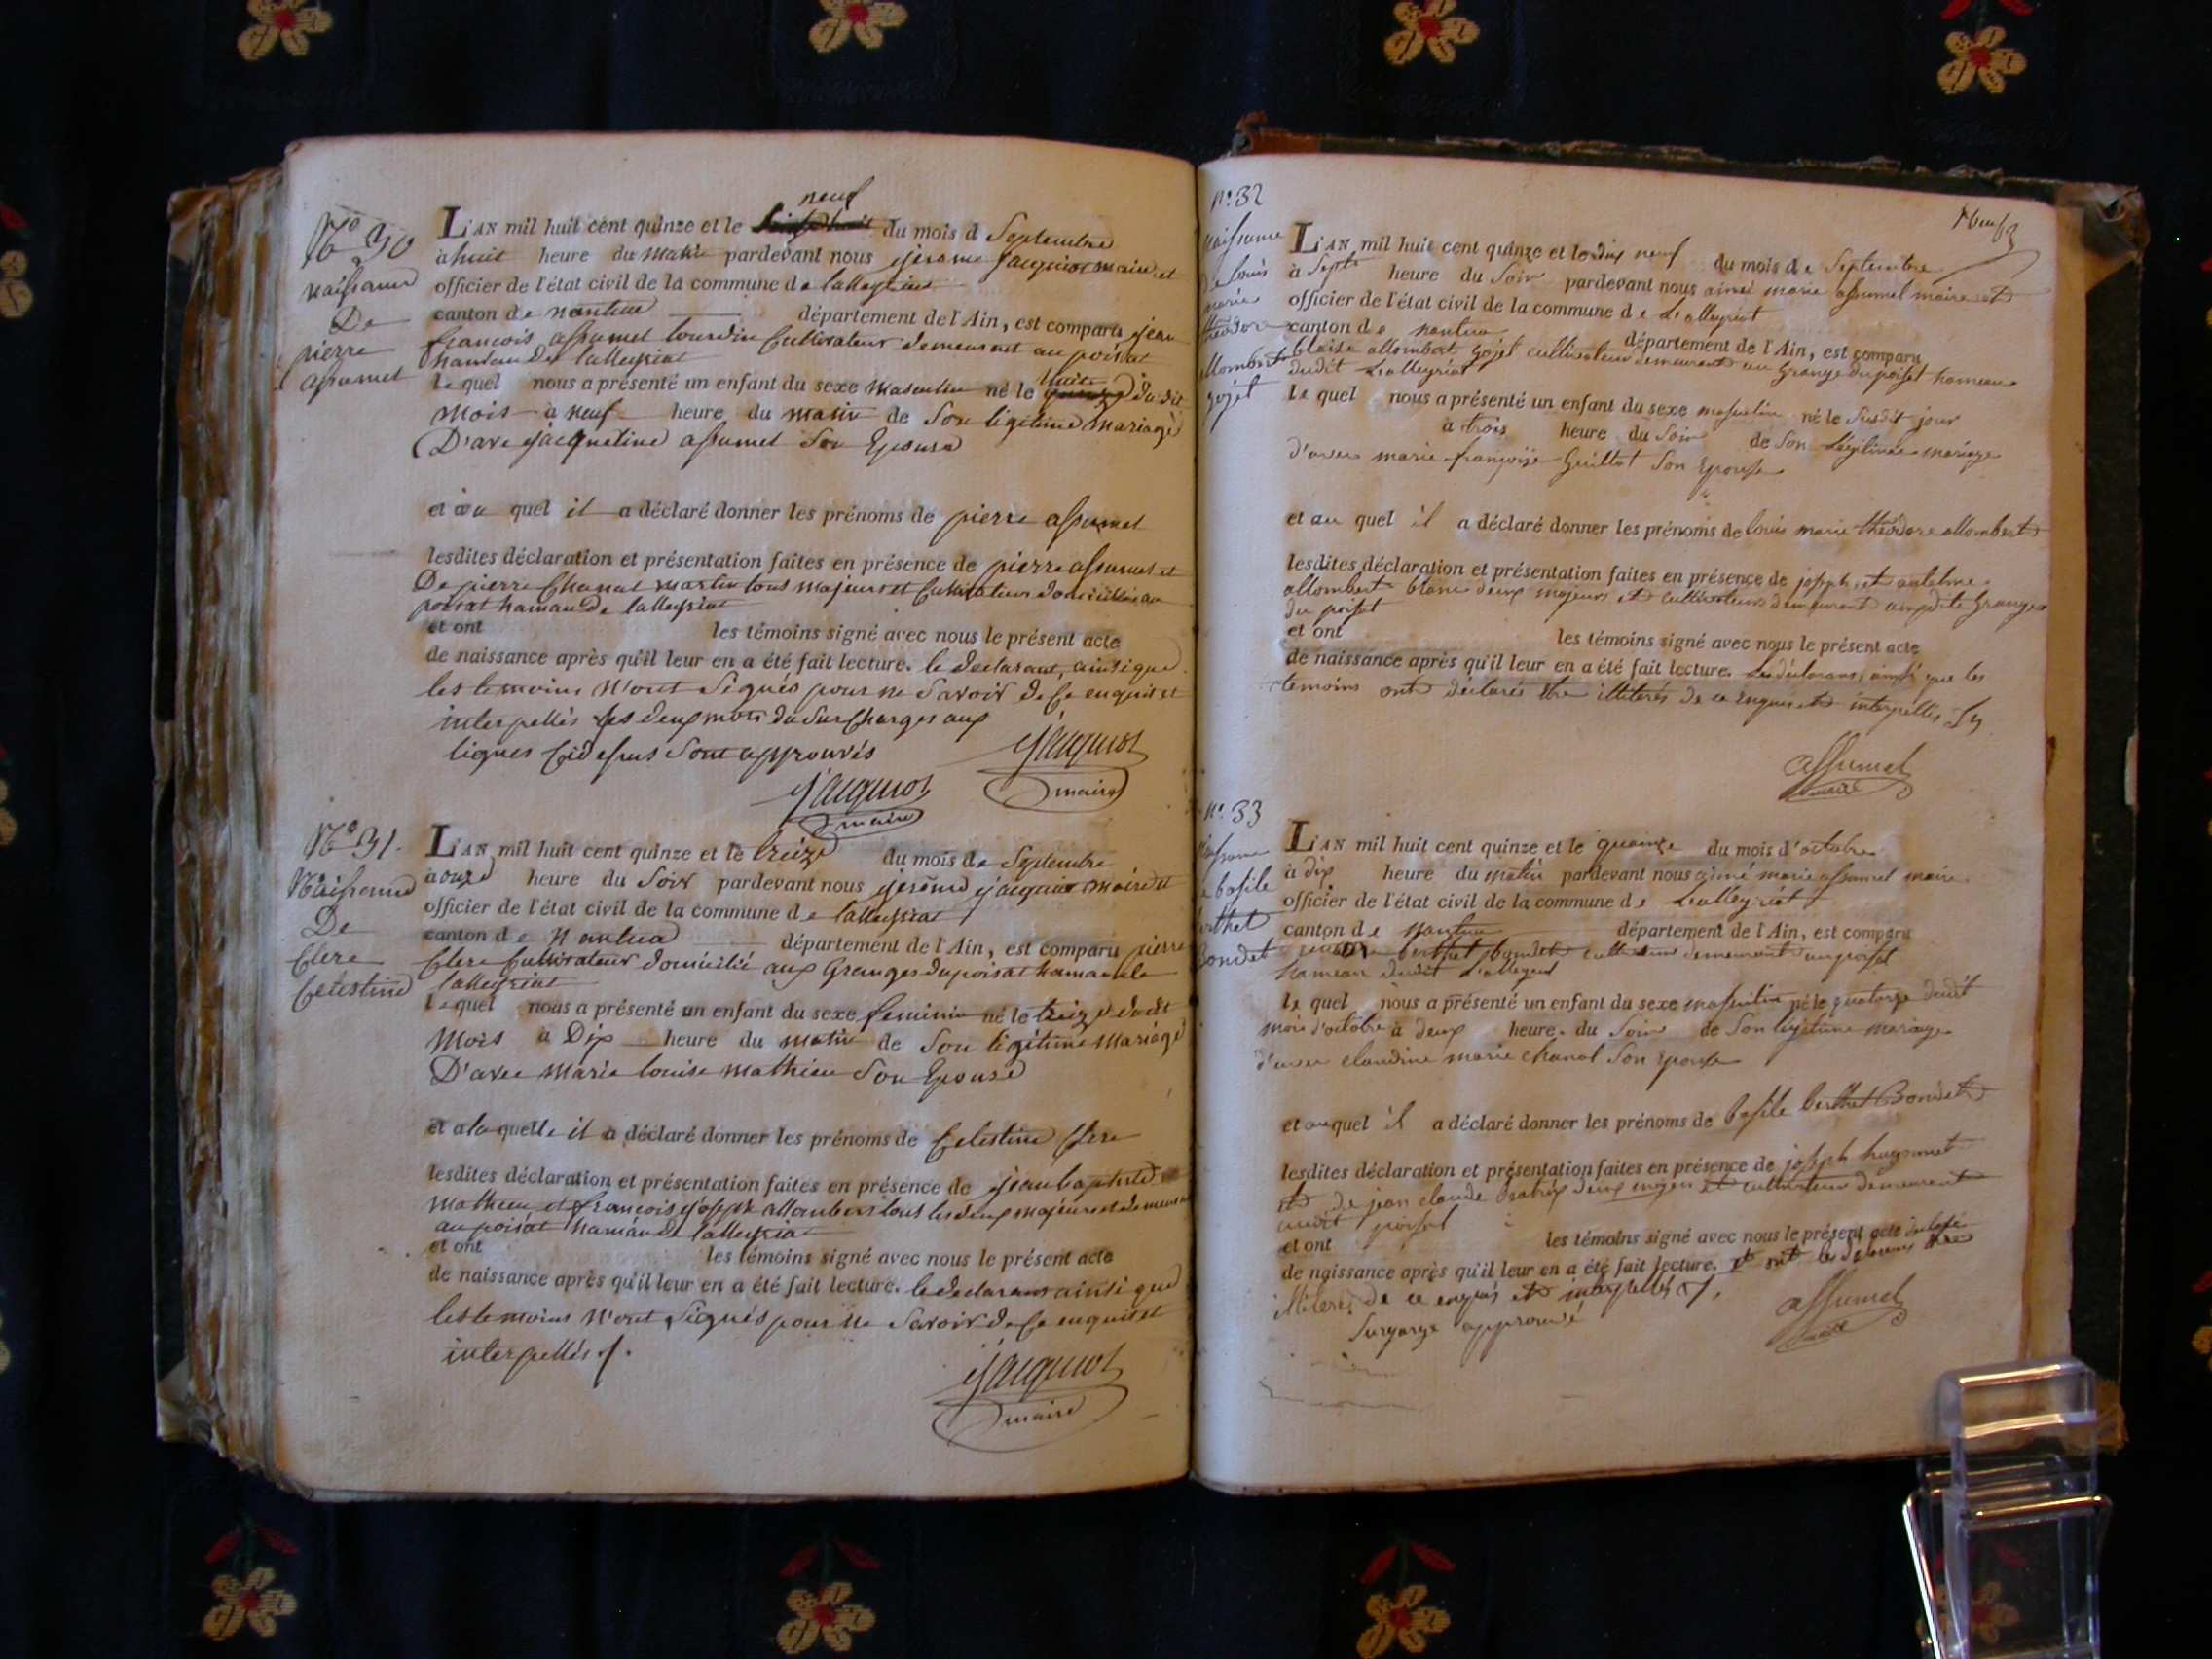 N.° 30
naissance
De
pierre
assumet
neuf
L'AN mil huit cent quinze et le du mois d Septembre
à huit heure du matin pardevant nous jérome jacquiot maire et
officier de l'état civil de la commune de lalleyriat
canton de nantua département de l'Ain, est comparu jean
françois assumet tourdin Cultivateur demeurant au poisat
hameau de lalleyriat
Le quel nous a présenté un enfant du sexe masculin né le huit du dit
mois à neuf heure du matin de Son légitime mariage
D'avec jacqueline assumet Son Epouse
et au quel il a déclaré donner les prénoms de pierre assumet
lesdites déclaration et présentation faites en présence de pierre assumet et
De pierre Chanal martin tous majeurs et Cultivateurs domiciliés au
poisat hamau de lalleyriat
et ont les témoins signé avec nous le présent acte
de naissance après qu'il leur en a été fait lecture. le declarant, ainsi que
les temoins N'ont Signés pour ne Savoir de Ce enquis et
interpellés les deux mots du Surcharges aux
lignes Cidessus Sont approuvés
jacquiot
maire
jacquiot
maire
N.° 31.
Naissance
De
Clere
Celestine
L'AN mil huit cent quinze et le treize du mois de Septembre
à onze heure du Soir pardevant nous jérome jacquiot maire et
officier de l'état civil de la commune de lalleyriat
canton de Nantua département de l'Ain, est comparu pierre
Clere Cultivateur domicilié aux Granges du poisat hamau de
lalleyriat
le quel nous a présenté un enfant du sexe feminin né le treize dudit
Mois à Dix heure du matin de Son légitime Mariage
D'avec Marie louise mathieu Son Epouse
et a la quelle il a déclaré donner les prénoms de Celestine Clere
lesdites déclaration et présentation faites en présence de jean baptiste
Mathieu et françois joseph allombert tous les deux majeurs et demeurant
au poisat hamau de lalleyriat
et ont les témoins signé avec nous le présent acte
de naissance après qu'il leur en a été fait lecture. le declarant ainsi que
les temoins N'ont Signés pour ne Savoir de Ce enquis et
interpellés ./.
jacquiot
maire
N.° 32
naissance
de louis
marie
théodore
allombert
gojet
L'AN mil huit cent quinze et le dix neuf du mois de Septembre
à Sept heure du Soir pardevant nous aimé marie assumel maire et
officier de l'état civil de la commune de Lalleyriat
canton de nantua département de l'Ain, est comparu
blaise allombert gojet cultivateur demeurant au Grange du poisat hameau
dudit Lalleyriat
le quel nous a présenté un enfant du sexe masculin né le Susdit jour
à trois heure du Soir de Son Légitime mariage
d'avec marie françoise Guillot Son Epouse
et au quel il a déclaré donner les prénoms de louis marie théodore allombert
lesdites déclaration et présentation faites en présence de joseph et antelme
allombert blanc deux majeurs et cultivateurs demeurant auxdite Granges
du poisat
et ont les témoins signé avec nous le présent acte
de naissance après qu'il leur en a été fait lecture. Les déclarans, ainsi que les
temoins ont déclarés être illiterés de ce enquis et interpellés
assumel
maire
N.° 33
naissance
de basile
berthet
Bondet
L'AN mil huit cent quinze et le quainze du mois d'octobre
à dix heure du matin pardevant nous aimé marie assumel maire
officier de l'état civil de la commune de Lalleyriat
canton de Nantua département de l'Ain, est comparu
berthet bondet cultivateur demeurant au poisat
hameau dudit Lalleyriat
le quel nous a présenté un enfant du sexe masculin né le quatorze dudit
mois d'octobre à deux heure du Soir de Son légitime mariage
d'avec claudine marie chanal Son Epouse
et auquel il a déclaré donner les prénoms de basile berthet Bondet
lesdites déclaration et présentation faites en présence de joseph hugonnet
et de jean claude deux majeurs et cultivateurs demeurant
audit poisat
et ont les témoins signé avec nous le présent acte
de naissance après qu'il leur en a été fait lecture. et ont
illiterés de ce enquis et interpellés ./.
Surgarge approuvé
assumel
maire